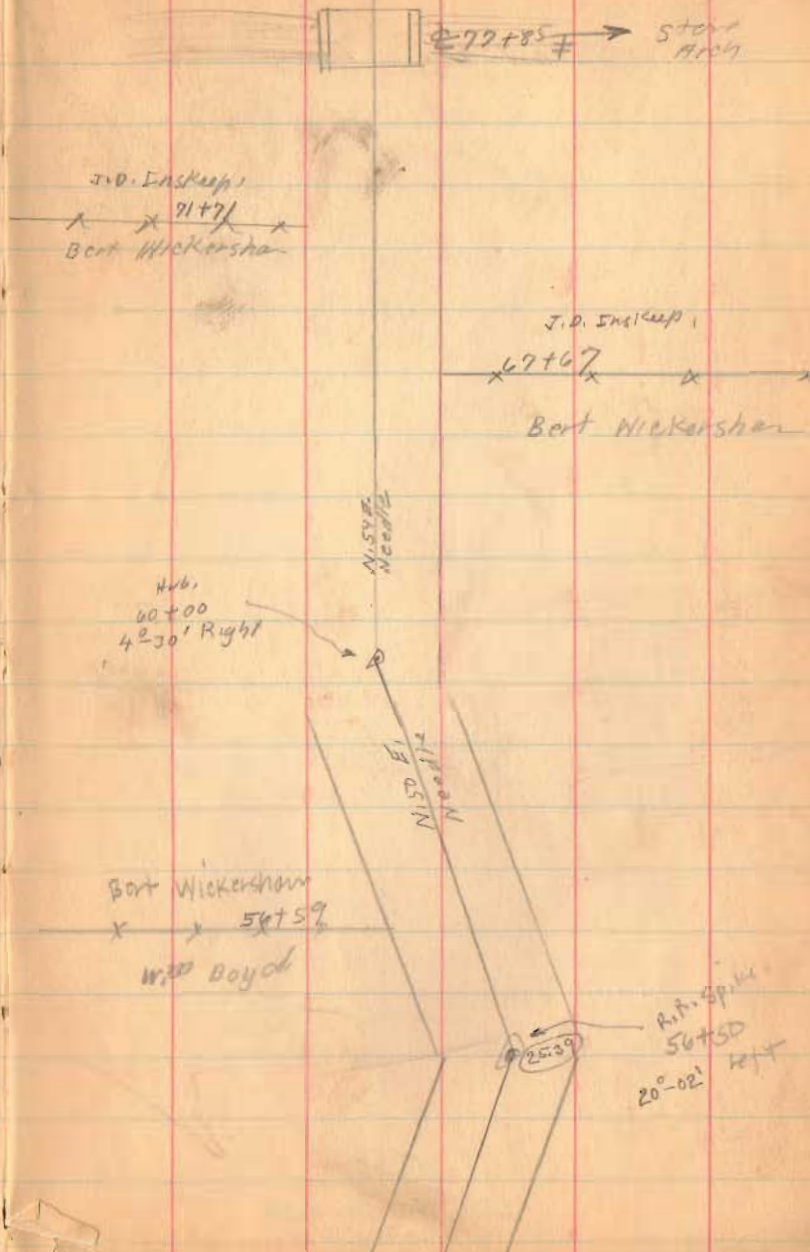 ℄ 77+85
Stone
Arch
J.D. Inskeep,
71+71
Bert Wickersham
J.D. Inskeep,
67+67
Bert Wickersham
N.54 E.
Needle
Hub,
60+00
4°-30' Right
N.50 E.
Needle
Bert Wickersham
56+59
Will Boyd
R.R. Spike
56+50
20°-02' Left
25.39